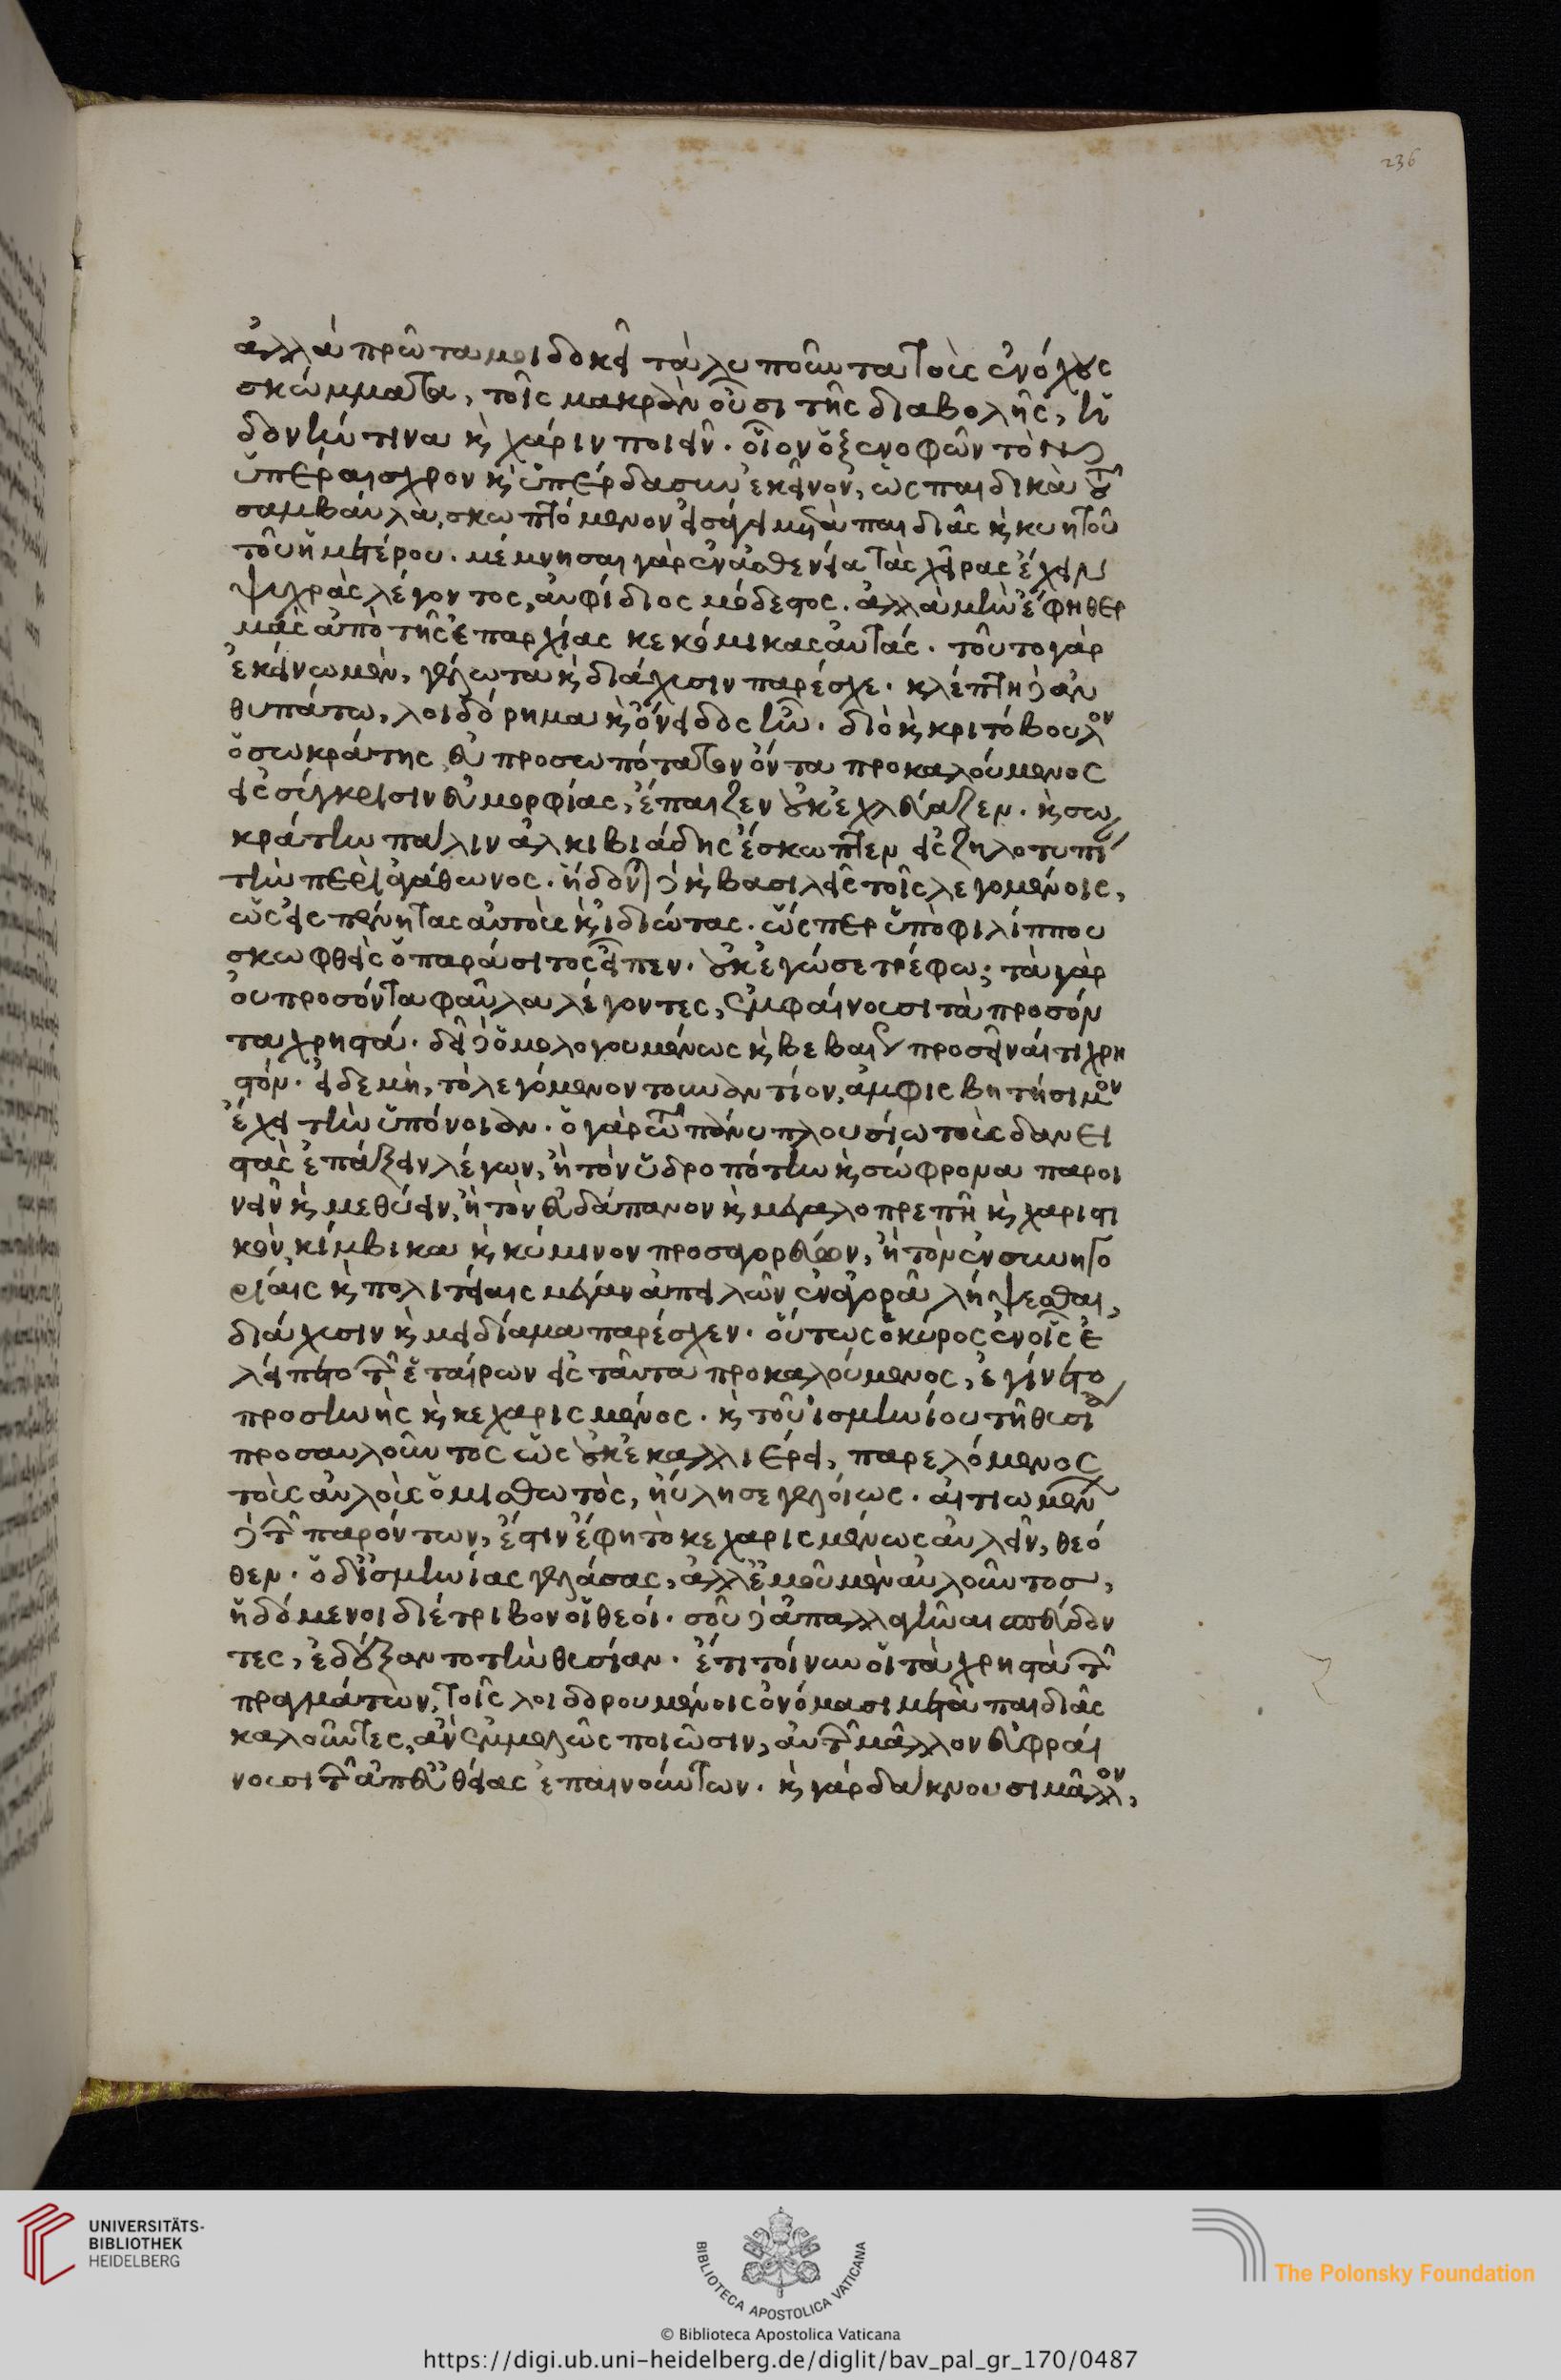 236
ἀλλὰ πρῶτα μοι δοκεῖ τὰ λυποῦντα τοὺς ἐνόχους
σκώμματα, τοῖς μακρὰν οὖσι τῆς διαβολῆς, ἡ
δονήν τινα κ̀ χάριν ποιεῖν. οἷον ὁ ξενοφῶν τὸν
ὑπέραισχρον κ̀ ὑπέρδασυν ἐκεῖνον, ὡς παιδικὰ τοῦ
σαμβαύλα, σκωπτόμενον εἰσάγει μετὰ παιδιᾶς κ̀ κυητοῦ
τοῦ ἡμετέρου. μέμνησαι γὰρ ἐν ἀσθενείᾳ τὰς χεῖρας ἔχειν
ψυχρὰς λέγοντος, αὐφίδιος μόδεστος. ἀλλὰ μὴν ἔφη θερ
μὰς ἀπὸ τῆς ἐπαρχίας κεκόμικας αὐτάς. τοῦτο γὰρ
ἐκείνω μὲν, γέλωτα κ̀ διάχυσιν παρέσχε. κλέπτη δὲ ἀν
θυπάτω, λοιδόρημα κ̀ ὄνειδος ἦν. διὸ κ̀ κριτόβουλον
ὁ σωκράτης εὐπροσωπότατον ὄντα προκαλούμενος
εἰς σύγκρισιν εὐμορφίας, ἔπαιζεν οὐκ ἐχλεύαζεν. κ̀ σω
κράτην πάλιν ἀλκιβιάδης ἔσκωπτεν εἰς ζηλοτυπί
τὴν περὶ ἀγάθωνος. ἥδονται δὲ κ̀ βασιλεῖς τοῖς λεγομένοις,
ὡς εἰς πένητας αὐτοὺς κ̀ ἰδιώτας. ὥσπερ ὑπὸ φιλίππου
σκωφθεὶς ὁ παράσιτος εἶπεν. οὐκ ἐγώ σε τρέφω; τὰ γὰρ
οὐ προσόντα φαῦλα λέγοντες, ἐμφαίνουσι τὰ προσόν
τα χρηστά. δεῖ δὲ ὁμολογουμένως κ̀ βεβαίως προσεῖναί τι χρη
στόν. εἰ δὲ μὴ, τὸ λεγόμενον τουναντίον, ἀμφισβητήσιμον
ἔχει τὴν ὑπόνοιαν. ὁ γὰρ τῶ πάνυ πλουσίω τοὺς δανει
στὰς ἐπάξειν λέγων, ἢ τὸν ὑδροπότην κ̀ σώφρονα παροι
νεῖν κ̀ μεθύειν, ἢ τὸν εὐδάπανον κ̀ μεγαλοπρεπῆ κ̀ χαριστι
κὸν, κίμβικα κ̀ κύμινον προσαγορεύων, ἢ τὸν ἐν συνηγο
ρίαις κ̀ πολιτείαις μέγαν ἀπειλῶν ἐν ἀγορᾶ λήψεσθαι,
διάχυσιν κ̀ μειδίαμα παρέσχεν. οὕτως ὁ κῦρος ἐν οἷς ἐ
λείπετο τῶν ἑταίρων εἰς ταῦτα προκαλούμενος, ἐγίνετο
προσηνὴς κ̀ κεχαρισμένος. κ̀ τοῦ ἰσμηνίου τῆ θυσία
προσαυλοῦντος ὡς οὐκ ἐκαλλιέρει, παρελόμενος
τοὺς αὐλοὺς ὁ μισθωτὸς, ηὔλησε γελοίως. αἰτιωμένων
δὲ τῶν παρόντων, ἔστιν ἔφη τὸ κεχαρισμένως αὐλεῖν, θεό
θεν. ὁ δ' ἰσμηνίας γελάσας, ἀλλ' ἐμοῦ μὲν αὐλοῦντος,
ἡδόμενοι διέτριβον οἱ θεοί. σοῦ δὲ ἀπαλλαγῆναι σπεύδον
τες, ἐδέξαντο τὴν θυσίαν. ἔτι τοίνυν οἱ τὰ χρηστὰ τῶν
πραγμάτων, τοῖς λοιδορουμένοις ὀνόμασι μετὰ παιδιᾶς
καλοῦντες, ἂν ἐμμελῶς ποιῶσιν, αὐτῶν μᾶλλον εὐφραί
νουσι τῶν ἀπ' εὐθείας ἐπαινούντων. κ̀ γὰρ δάκνουσι μᾶλλον,
UNIVERSITÄTS-
BIBLIOTHEK
HEIDELBERG
BIBLIOTECA APOSTOLICA VATICANA
The Polonsky Foundation
© Biblioteca Apostolica Vaticana
https://digi.ub.uni-heidelberg.de/diglit/bav_pal_gr_170/0487